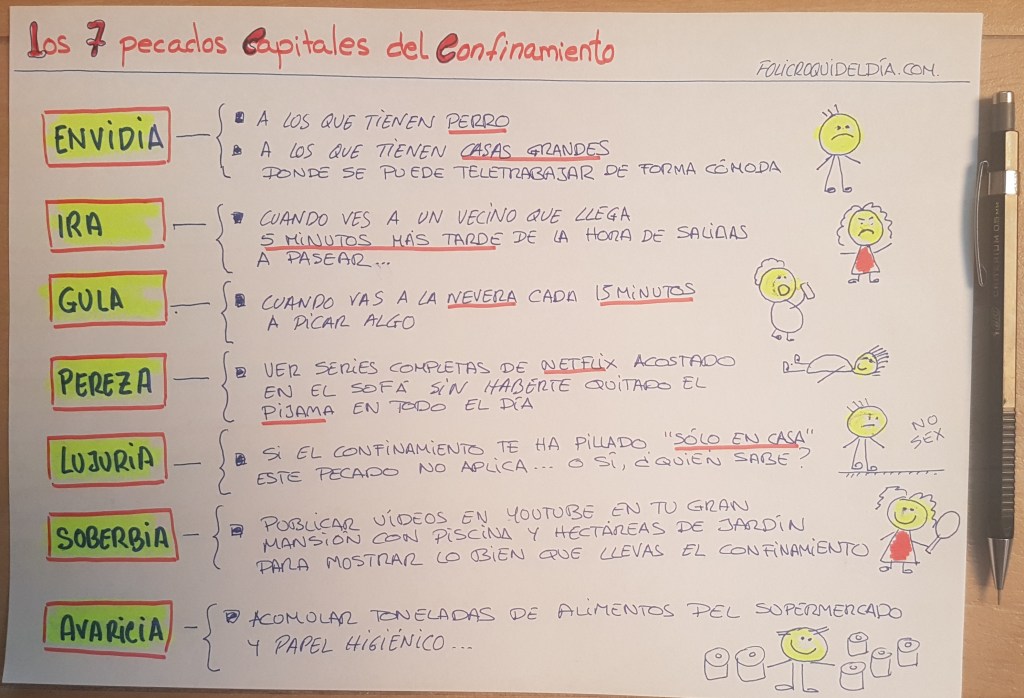 Los 7 pecados Capitales del Confinamiento
FOLICROQUIDELDÍA.COM.
ENVIDIA
A LOS QUE TIENEN PERRO
A LOS QUE TIENEN CASAS GRANDES
DONDE SE PUEDE TELETRABAJAR DE FORMA CÓMODA
IRA
CUANDO VES A UN VECINO QUE LLEGA
5 MINUTOS MÁS TARDE DE LA HORA DE SALIDAS
A PASEAR...
GULA
CUANDO VAS A LA NEVERA CADA 15 MINUTOS
A PICAR ALGO
PEREZA
VER SERIES COMPLETAS DE NETFLIX ACOSTADO
EN EL SOFÁ SIN HABERTE QUITADO EL
PIJAMA EN TODO EL DÍA
LUJURIA
SI EL CONFINAMIENTO TE HA PILLADO "SÓLO EN CASA"
ESTE PECADO NO APLICA... O SÍ, ¿QUIÉN SABE?
NO
SEX
SOBERBIA
PUBLICAR VÍDEOS EN YOUTUBE EN TU GRAN
MANSIÓN CON PISCINA Y HECTÁREAS DE JARDÍN
PARA MOSTRAR LO BIEN QUE LLEVAS EL CONFINAMIENTO
AVARICIA
ACOMULAR TONELADAS DE ALIMENTOS DEL SUPERMERCADO
Y PAPEL HIGIÉNICO...